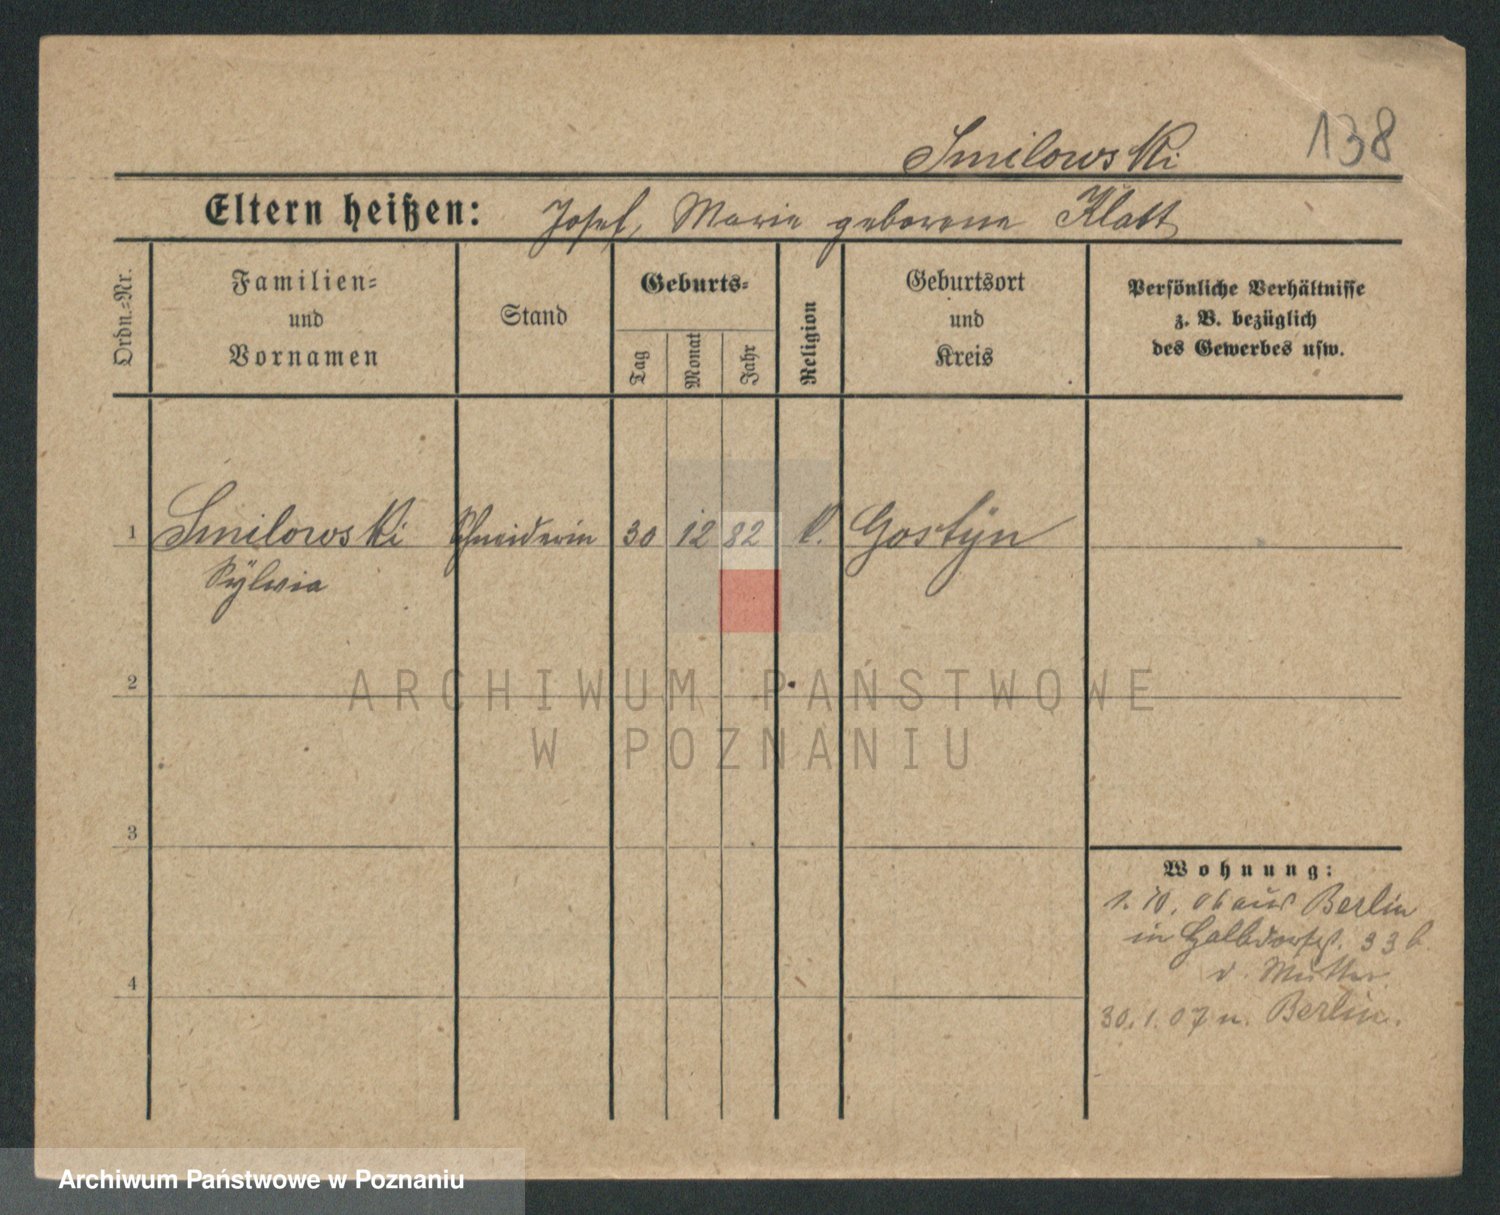 138
Smilowski
Eltern heißen: Josef, Marie geborene Klatt
Ordn.-Nr.
Familien-
und
Vornamen
Stand
Geburts-
Tag
Monat
Jahr
Religion
Geburtsort
und
Kreis
Persönliche Verhältnisse
z. B. bezüglich
des Gewerbes usw.
1 Smilowski Schneiderin 30 12 82 k. Gostÿn
Sÿlvia
2
ARCHIWUM PAŃSTWOWE
W POZNANIU
3
Wohnung:
1. 10. 06 aus Berlin
in Halbdorfst. 33 b.
4
d. Mutter.
30. 1. 07 n. Berlin.
Archiwum Państwowe w Poznaniu